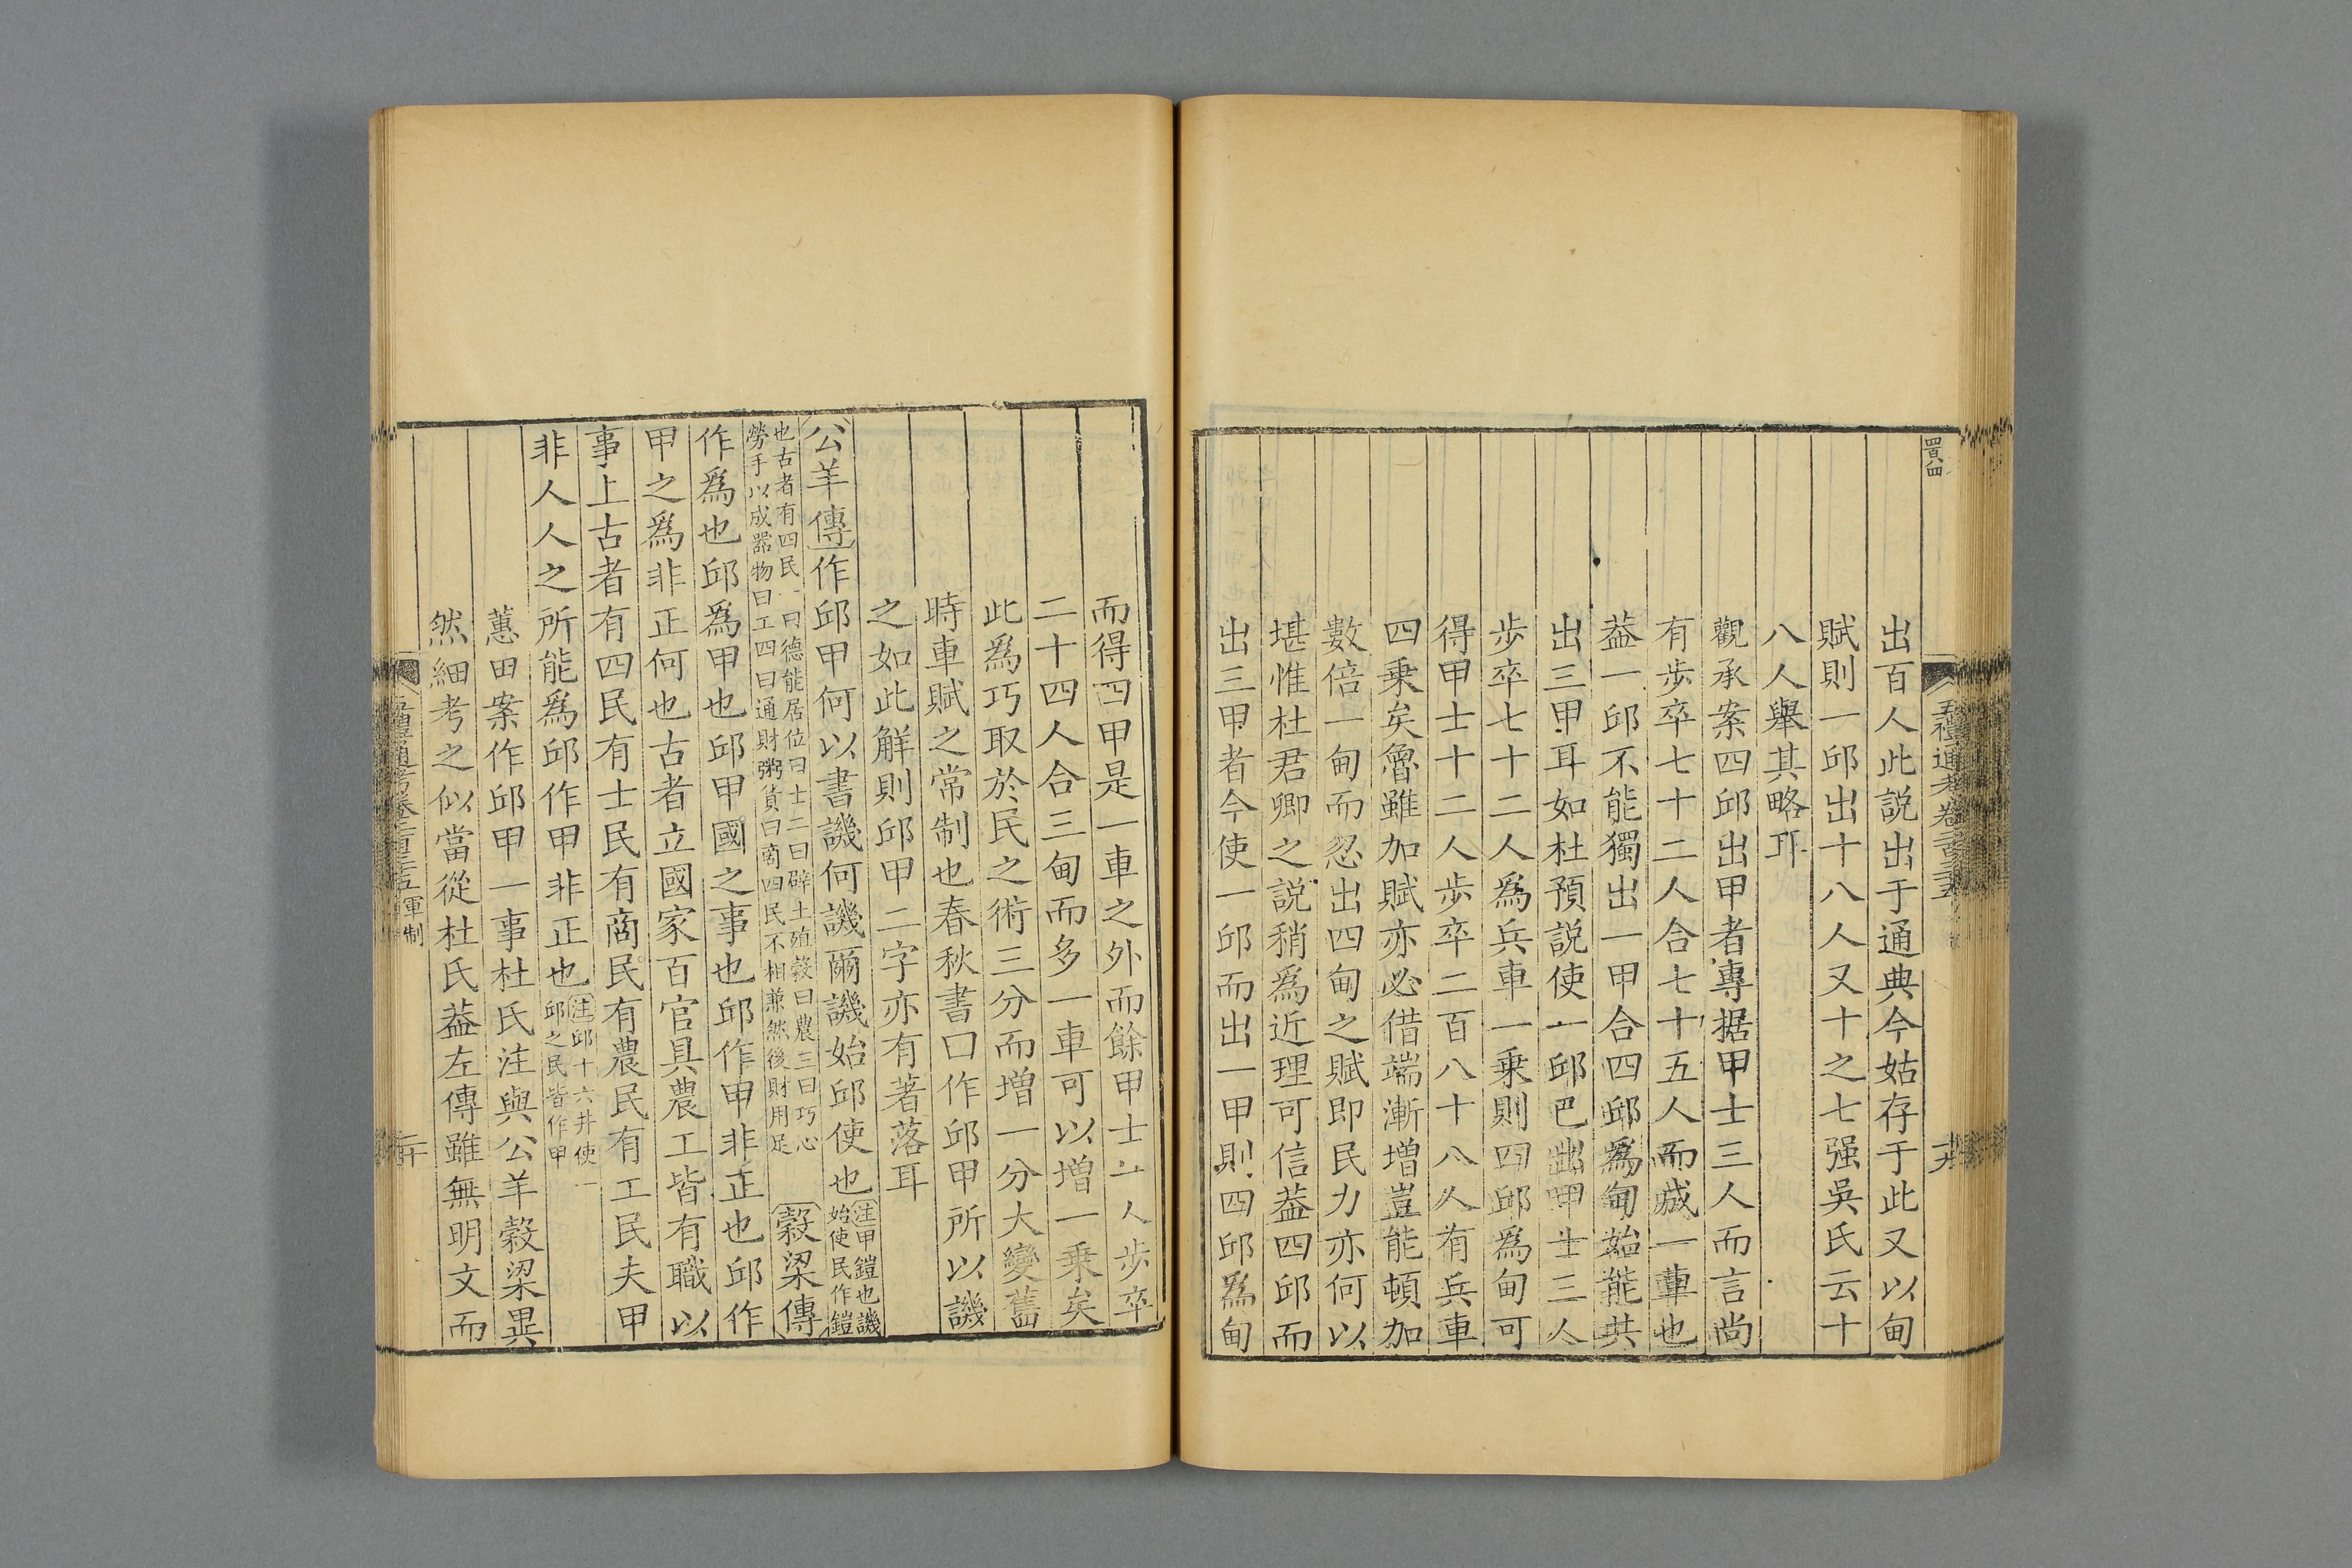 出百人此説出于通典今姑存于此又以甸
賦則一邱出十八人又十之七强吳氏云十
八人舉其略耳
觀承案四邱出甲者專据甲士三人而言尚
有步卒七十二人合七十五人而成一車也
葢一邱不能獨出一甲合四邱爲甸始能共
出三甲耳如杜預説使一邱巴出甲士三人
步卒七十二人爲兵車一乗則四邱爲甸可
得甲士十二人步卒二百八十八人有兵車
四乗矣魯雖加賦亦必借端漸増豈能頓加
數倍一甸而忍出四甸之賦即民力亦何以
堪惟杜君卿之説稍爲近理可信葢四邱而
出三甲者今使一邱而出一甲則四邱爲甸
而得四甲是一車之外而餘甲士一人步卒
二十四人合三甸而多一車可以増一乗矣
此爲巧取於民之術三分而増一分大變舊
時車賦之常制也春秋書曰作邱甲所以譏
之如此解則邱甲二字亦有著落耳
公羊傳作邱甲何以書譏何譏爾譏始邱使也注甲鎧也譏始使民作鎧
也古者有四民一曰德能居位曰士二曰辟土殖穀曰農三曰巧心勞手以成器物曰工四曰通財粥貨曰商四民不相兼然後財用足穀梁傳
作爲也邱爲甲也邱甲國之事也邱作甲非正也邱作
甲之爲非正何也古者立國家百官具農工皆有職以
事上古者有四民有士民有商民有農民有工民夫甲
非人人之所能爲邱作甲非正也注邱十六井使一邱之民皆作甲
蕙田案作邱甲一事杜氏注與公羊穀梁異
然細考之似當從杜氏葢左傳雖無明文而
五禮通考卷二百三十五
軍制